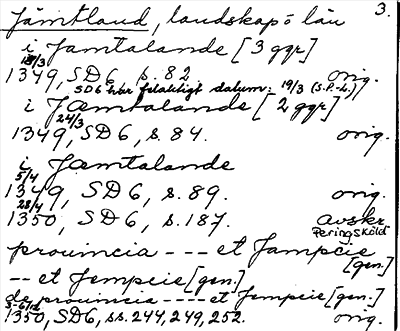 Jämtland, landskap o län 3.
i Jamtalande [3 ggr]
18/3
1349, SD6, s. 82 orig.
SD6 har felaktigt datum: 19/3 (S.P-L.)
i Jæmtalande [2 ggr]
24/3
1349, SD6, s. 84. orig.
i Jæmtalande
5/4
1349, SD6, s. 89. orig.
28/4
1350, SD6, s. 187. avskr
Peringsköld
prouincia --- et Jampcie
[gen.]
-- et Jempcie [gen.]
de prouincia ---- et Jempcie [gen.]
3-6/12
1350, SD6, ss. 247, 249, 252. orig.